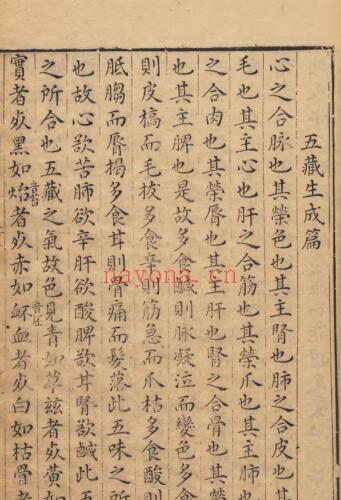 五藏生成篇
心之合脉也其榮色也其主腎也肺之合皮也其
毛也其主心也肝之合筋也其榮爪也其主肺也
之合肉也其榮脣也其主肝也腎之合骨也其
也其主脾也是故多食鹹則脉凝泣而變色多
則皮槁而毛拔多食辛則筋急而爪枯多食酸則
胝而脣揭多食甘則骨痛而髮落此五味之
也故心欲苦肺欲辛肝欲酸脾欲甘腎欲鹹此五
之所合也五藏之氣故色見青如草兹者死黄如
實者死黑如炲音苔者死赤如衃音丕血者死白如枯骨者
nayona.cn